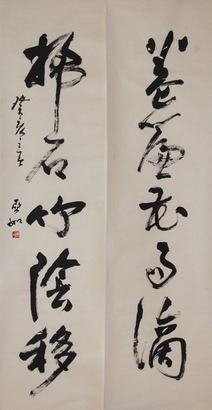 卷簾花雨滴
掃石竹陰移
癸亥之夏